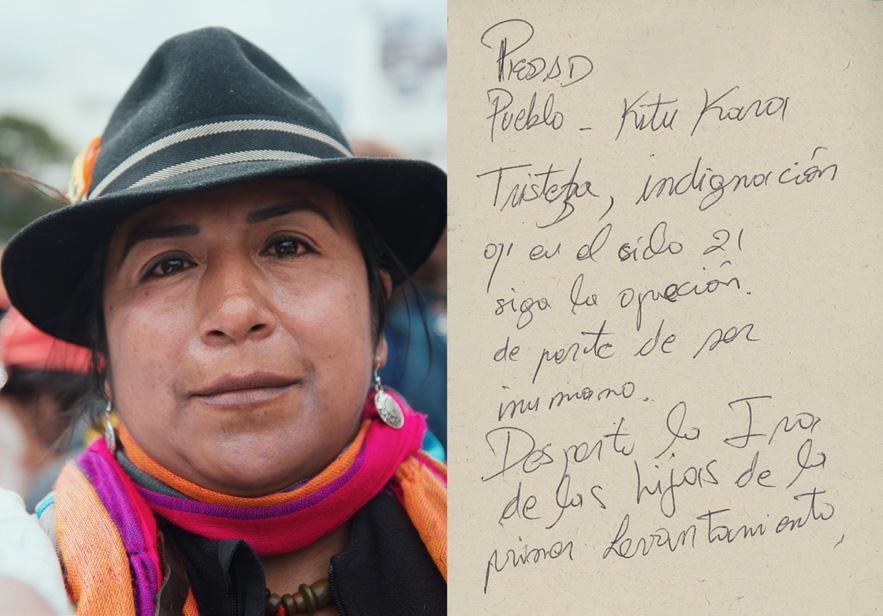 PIEDAD
Pueblo - Kitu Kara
Tristeza, indignación
q' en el siclo 21
siga la opreción.
de parte de ser
inumano.
Desparto la Ira
de las hijas de la
primer Levantamiento,